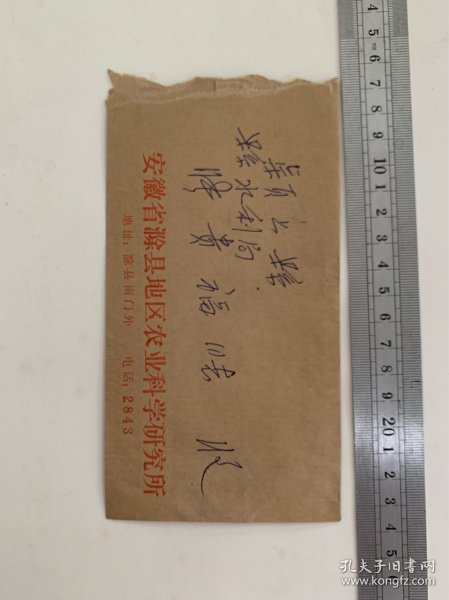 县水利局
贵福
收
安徽省滁县地区农业科学研究所
地址：滁县南门外 电话：2843
4 5 6 7 8 9 10 1 2 3 4 5 6 7 8 9 20 1 2 3 4 5
孔夫子旧书网
www.kongfz.com